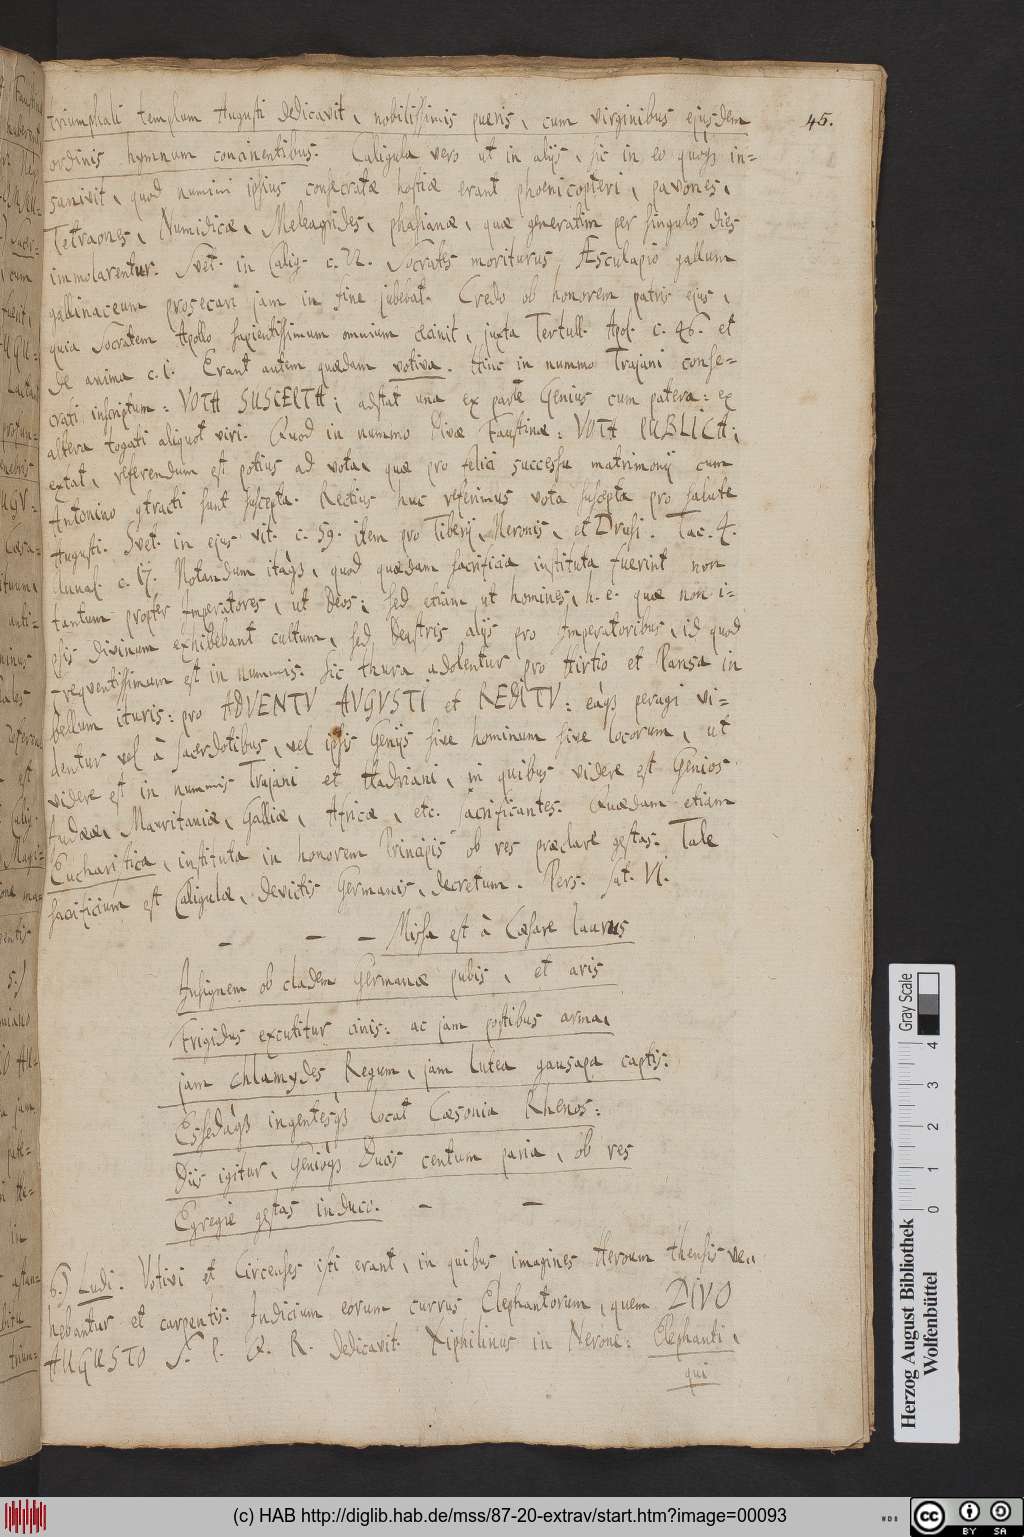 45.
triumphali templum Augusti dedicavit, nobilissimis pueris, cum virginibus ejusdem
ordinis hymnum concinentibus. Caligula vero ut in alijs, sic in eo quoqꝫ in=
sanivit, quod numini ipsius consecratæ hostiæ erant phoenicopteri, pavones,
Tetraones, Numidicæ, Meleagrides, phasianæ, quæ generatim per singulos dies
immolarentur. Svet. in Calig. c. 22. Socrates moriturus Æsculapio gallum
gallinaceum prosecari jam in fine jubebat. Credo ob honorem patris ejus,
quia Socratem Apollo sapientissimum omnium cecinit, juxta Tertull. Apol. c. 46. et
de anima c. 1. Erant autem quædam votiva. Hinc in nummo Trajani conse=
crati inscriptum: VOTA SUSCEPTA; adstat una ex parte Genius cum patera: ex
altera togati aliquot viri. Quod in nummo Divæ Faustinæ: VOTA PUBLICA;
extat, referendum est potius ad vota, quæ pro felici successu matrimonij cum
Antonino contracti sunt suscepta. Rectius huc referimus vota suscepta pro salute
Augusti. Svet. in ejus vit. c. 59. item pro Tiberij, Neronis, et Drusi. Tac. 4.
Annal. c. 17. Notandum itaqꝫ, quod quædam sacrificia instituta fuerint non
tantum propter Imperatores, ut Deos; sed etiam ut homines, h. e. quæ non i=
psis divinum exhibebant cultum, sed Deastris alijs pro Imperatoribus, id quod
frequentissimum est in nummis. Sic thura adolentur pro Hirtio et Pansa in
bellum ituris: pro ADVENTV AUGVSTI et REDITV: eaqꝫ peragi vi=
dentur vel à sacerdotibus, vel ipsis Genijs sive hominum sive locorum, ut
videre est in nummis Trajani et Hadriani, in quibus videre est Genios
Judææ, Mauritaniæ, Galliæ, Africæ, etc. sacrificantes. Quædam etiam
Eucharistica, instituta in honorem Principis ob res præclare gestas. Tale
sacrificium est Caligulæ, devictis Germanis, decretum. Pers. Sat. VI.
– – – Missa est à Cæsare laurus
Insignem ob cladem Germanæ pubis, et aris
Frigidus excutitur cinis: ac jam postibus arma,
jam chlamydes Regum, jam lutea gausapa captis:
Essedaqꝫ ingentesqꝫ locat Cæsonia Rhenos:
Diis igitur, Genioqꝫ Ducis centum paria, ob res
Egregie gestas induco. – –
6.) Ludi. Votivi et Circenses isti erant, in quibus imagines Heroum thensis ve=
hebantur et carpentis. Indicium eorum currus Elephantorum, quem DIVO
AUGUSTO S. P. Q. R. dedicavit. Xiphilinus in Nerone: Elephanti,
qui
Herzog August Bibliothek
Wolfenbüttel
0 1 2 3 4
Gray Scale
(c) HAB http://diglib.hab.de/mss/87-20-extrav/start.htm?image=00093
cc BY SA